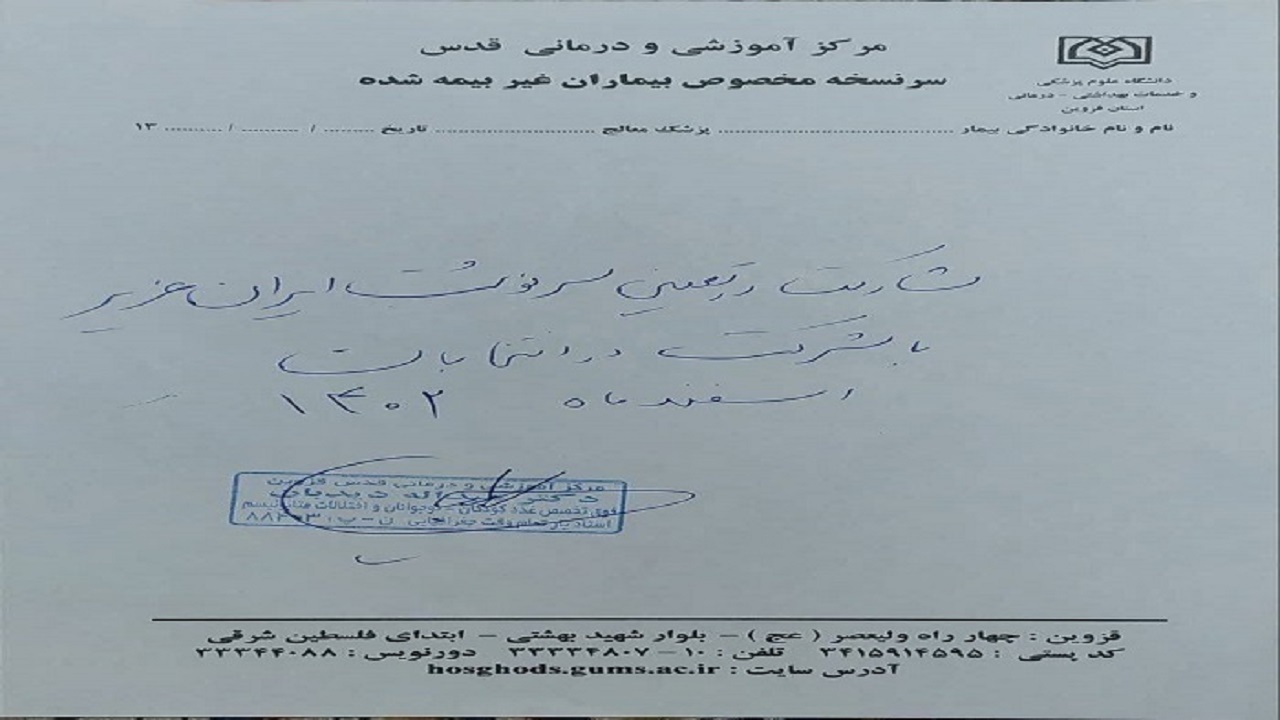 مرکز آموزشی و درمانی قدس
سرنسخه مخصوص بیماران غیر بیمه شده
دانشگاه علوم پزشکی
و خدمات بهداشتی - درمانی
استان قزوین
نام و نام خانوادگی بیمار .......... پزشک معالج .......... تاریخ ........ / ........ / ........ ۱۳
مشارکت در تعیین سرنوشت ایران عزیز
با شرکت در انتخابات
اسفند ماه ۱۴۰۲
مرکز آموزشی و درمانی قدس قزوین
دکتر
فوق تخصص غدد کودکان - نوجوانان و اختلالات متابولیسم
استادیار تمام وقت جغرافیایی
قزوین : چهار راه ولیعصر ( عج ) - بلوار شهید بهشتی - ابتدای فلسطین شرقی
کد پستی : ۳۴۱۵۹۱۴۵۹۵ تلفن : ۱۰ - ۳۳۳۳۴۸۰۷ دورنویس : ۳۳۳۴۴۰۸۸
آدرس سایت : hosghods.gums.ac.ir